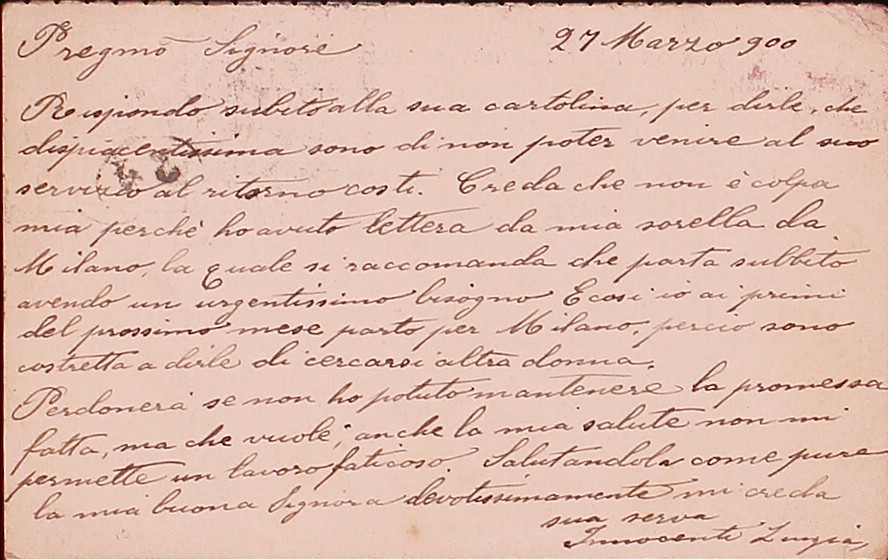 Pregmo Signore 27 Marzo 900
Rispondo subito alla sua cartolina, per dirle, che
dispiacentissima sono di non poter venire al suo
servizio al ritorno costi. Creda che non è colpa
mia perchè ho avuto lettera da mia sorella da
Milano, la quale si raccomanda che parta subbito
avendo un urgentissimo bisogno E così io ai primi
del prossimo mese parto per Milano, perciò sono
costretta a dirle di cercarsi altra donna.
Perdonerà se non ho potuto mantenere la promessa
fatta, ma che vuole, anche la mia salute non mi
permette un lavoro faticoso Salutandola come pure
la mia buona Signora devotissimamente mi creda
sua serva
Innocenti